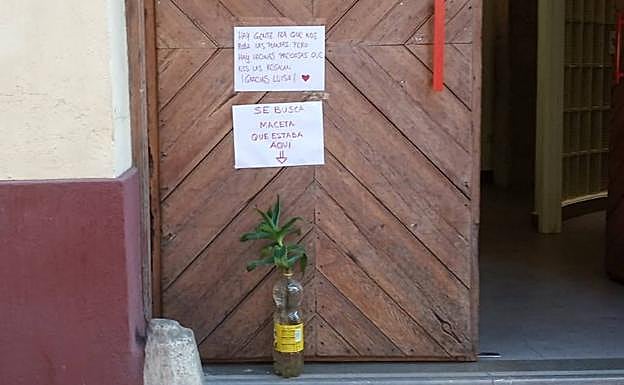 HAY GENTE PA QUE NOS
ROBA LAS PLANTAS PERO
HAY VECINAS PRECIOSAS QUE
NOS LAS REGALAN
¡GRACIAS LUISA!
SE BUSCA
MACETA
QUE ESTABA
AQUI